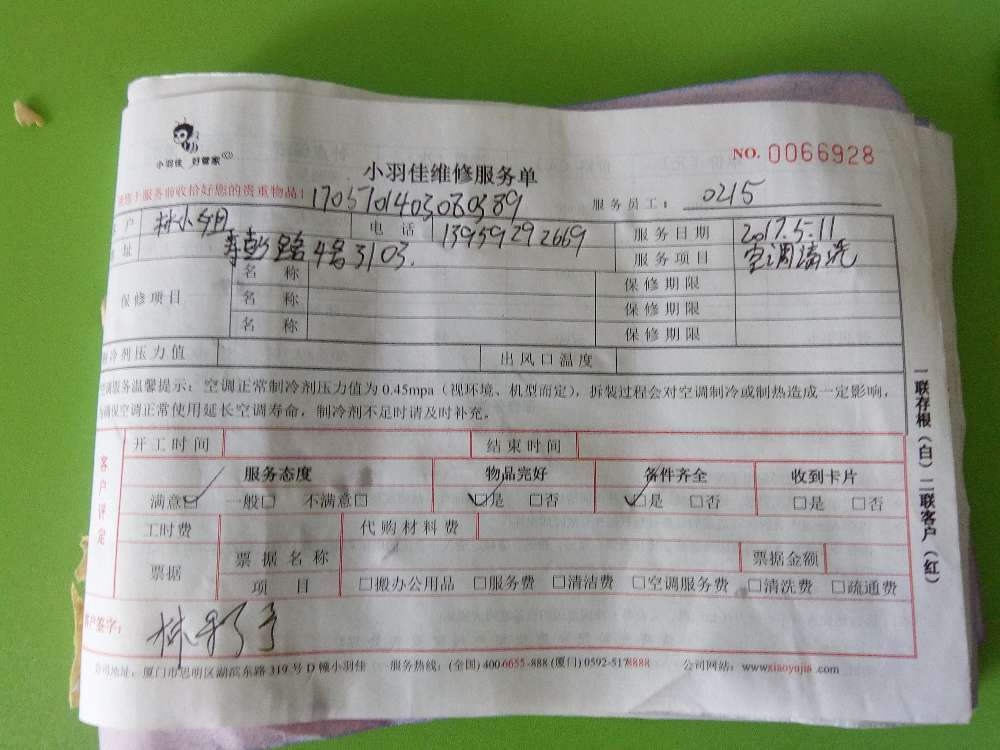 小羽佳 好管家
NO. 0066928
小羽佳维修服务单
服务前收拾好您的贵重物品! 1705701403080389 服务员工: 0215
户 林小姐 电话 13959292669 服务日期 2017.5.11
址 路4号3103. 服务项目 空调清洗
保修项目 名称 保修期限
名称 保修期限
名称 保修期限
冷剂压力值 出风口温度
空调服务温馨提示: 空调正常制冷剂压力值为 0.45mpa (视环境、机型而定), 拆装过程会对空调制冷或制热造成一定影响,
确保空调正常使用延长空调寿命, 制冷剂不足时请及时补充。
开工时间 结束时间
客户评定
服务态度 物品完好 备件齐全 收到卡片
满意☑ 一般□ 不满意□ ☑是 □否 ☑是 □否 □是 □否
工时费 代购材料费
票据 票据名称 票据金额
项目 □搬办公用品 □服务费 □清洁费 □空调服务费 □清洗费 □疏通费
客户签字: 林
公司地址: 厦门市思明区湖滨东路 319 号 D 幢小羽佳 服务热线: (全国) 400-6655-888 (厦门) 0592-5178888 公司网站: www.xiaoyujia.com
一联存根(白) 二联客户(红)